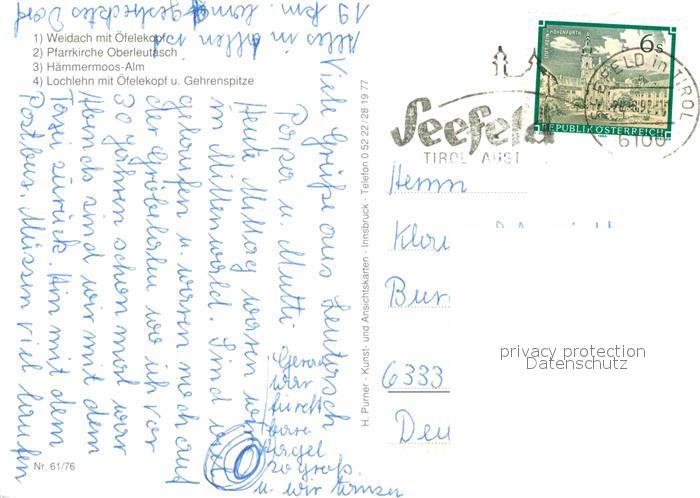 1) Weidach mit Öfelekopf
2) Pfarrkirche Oberleutasch
3) Hämmermoos-Alm
4) Lochlehn mit Öfelekopf u. Gehrenspitze
Viele Grüße aus Leutasch
Papa u. Mutti
Heute Mittag waren wir
in Mittenwald. Sind viel
gelaufen u. waren noch auf
der Gröbelalm wo ich vor
30 Jahren schon mal war
Abend sind wir mit dem
Taxi zurück. Hin mit dem
Postbus. Müssen viel laufen
Alles in allem ist
19 km. langgestrecktes Dorf
Gerade
war
furcht
bare
Hagel
so groß.
u. wir
Nr. 61/76
H. Purner - Kunst- und Ansichtskarten - Innsbruck - Telefon 0 52 22 / 28 19 77
STIFT HOHENFURTH
6 S
REPUBLIK ÖSTERREICH
Seefeld
TIROL AUST
SEEFELD in TIROL
6100
Herrn
6333
privacy protection
Datenschutz